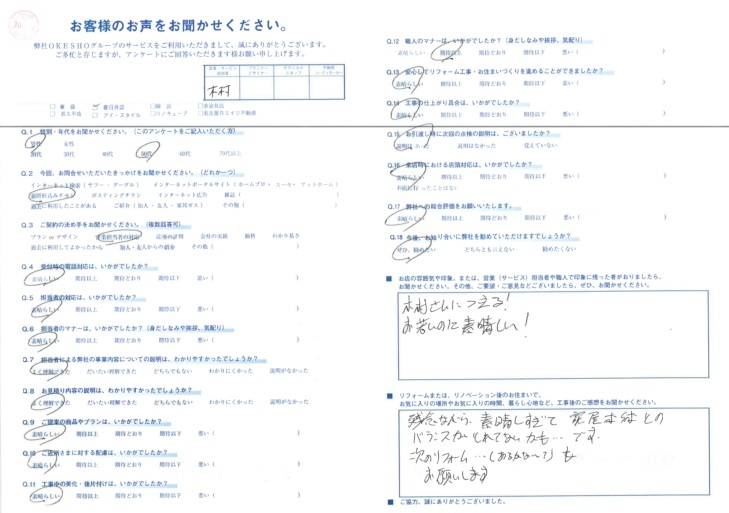 お客様のお声をお聞かせください。
弊社OKESHOグループのサービスをご利用いただきまして、誠にありがとうございます。
ご多忙と存じますが、アンケートにご回答いただきます様お願い申し上げます。
木村
春日井店
緑店
名古屋店
長久手店
アイ・スタイル
リノキューブ
名古屋カエイジ不動産
Q.1 性別・年代をお聞かせください。(このアンケートをご記入いただく方)
男性 女性
20代 30代 40代 50代 60代 70代以上
Q.2 今回、お問合せいただいたきっかけをお聞かせください。(どれか一つ)
インターネット検索(ヤフー・グーグル) インターネットポータルサイト(ホームプロ・スーモ・アットホーム)
新聞折込みチラシ ポスティングチラシ インターネット広告 雑誌( )
過去に利用したことがある ご紹介(知人・友人・東邦ガス) その他( )
Q.3 ご契約の決め手をお聞かせください。(複数回答可)
プランorデザイン 営業担当者の対応 店舗の訪問 会社の実績 価格 わかり易さ
過去に利用してよかったから 知人・友人からの紹介 その他( )
Q.4 受付時の電話対応は、いかがでしたか?
素晴らしい 期待以上 期待どおり 期待以下 悪い( )
Q.5 担当者の対応は、いかがでしたか?
素晴らしい 期待以上 期待どおり 期待以下 悪い( )
Q.6 担当者のマナーは、いかがでしたか?(身だしなみや挨拶、気配り)
素晴らしい 期待以上 期待どおり 期待以下 悪い( )
Q.7 担当者による弊社の事業内容についての説明は、わかりやすかったでしょうか?
よく理解できた だいたい理解できた どちらでもない わかりにくかった 説明がなかった
Q.8 お見積り内容の説明は、わかりやすかったでしょうか?
よく理解できた だいたい理解できた どちらでもない わかりにくかった 説明がなかった
Q.9 ご提案の商品やプランは、いかがでしたか?
素晴らしい 期待以上 期待どおり 期待以下 悪い( )
Q.10 ご近所さまに対する配慮は、いかがでしたか?
素晴らしい 期待以上 期待どおり 期待以下 悪い( )
Q.11 工事中の美化・後片付けは、いかがでしたか?
素晴らしい 期待以上 期待どおり 期待以下 悪い( )
Q.12 職人のマナーは、いかがでしたか?(身だしなみや挨拶、気配り)
素晴らしい 期待以上 期待どおり 期待以下 悪い( )
Q.13 安心してリフォーム工事・お住まいづくりを進めることができましたか?
素晴らしい 期待以上 期待どおり 期待以下 悪い( )
Q.14 工事の仕上がり具合は、いかがでしたか?
素晴らしい 期待以上 期待どおり 期待以下 悪い( )
Q.15 お引渡し時に次回の点検の説明は、ございましたか?
説明はあった 説明はなかった 覚えていない
Q.16 来店時における店頭対応は、いかがでしたか?
素晴らしい 期待以上 期待どおり 期待以下 悪い( )
お店に行ったことはない
Q.17 弊社への総合評価をお願いいたします。
素晴らしい 期待以上 期待どおり 期待以下 悪い( )
Q.18 今後、お知り合いに弊社を勧めていただけますでしょうか?
ぜひ、勧めたい どちらとも言えない 勧めたくない
■ お店の雰囲気や印象、または、営業(サービス)担当者や職人で印象に残った者がおりましたら、
お聞かせください。その他、ご要望・ご意見などございましたら、ぜひ、お聞かせください。
木村さんにつきる!
お若いのに素晴しい!
■ リフォームまたは、リノベーション後のお住まいで、
お気に入りの場所やお気に入りの時間、暮らし心地など、工事後のご感想をお聞かせください。
残念ながら、素晴しすぎて 家屋本体との
バランスがとれてないかも…です.
次のリフォーム…(あるかな〜?)も
お願いします
■ ご協力、誠にありがとうございました。